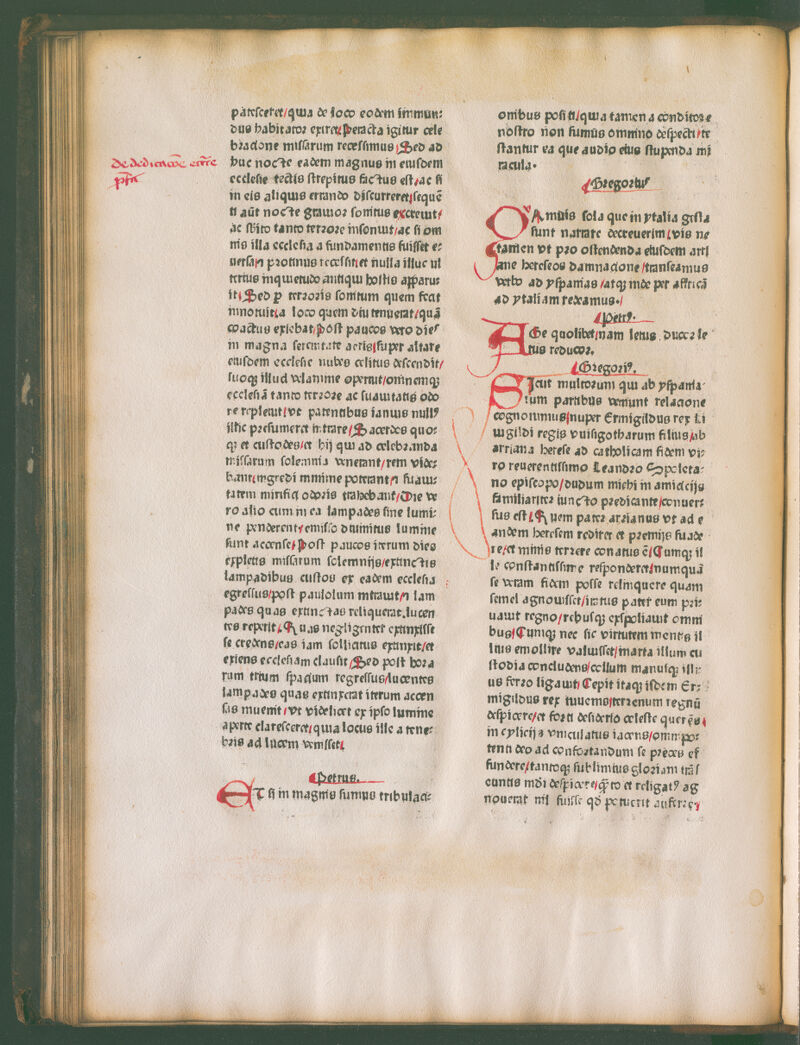 de dedicacōe eccᷓe
patesceret/quia de loco eodem immun:
dus habitator exiret/Peracta igitur cele
bracione missarum recessimus/Sed ad
huc nocte eadem magnus in eiusdem
ecclesie tectis strepitus factus est/ac si
in eis aliquis errando discurreret/sequē
ti aūt nocte grauior sonitus excreuit/
ac sbito tanto terrore insonuit/ac si om
nis illa ecclesia a fundamentis fuisset e:
uersa/⁊ protinus recessit/et nulla illuc ul
terius inquietudo antiqui hostis apparu:
it/Sed p terroris sonitum quem fecat
innotuit/a loco quem diu tenuerat/quā
coactus exiebat/Post paucos vero dieꝰ
in magna serenitate aeris/super altare
eiusdem ecclesie nubes celitus descendit/
suoqꝫ illud velamine operuit/omnemqꝫ
ecclesiā tanto terrore ac suauitatis odo
re repleuit/vt patentibus ianuis nullꝰ
illic presumeret intrare/Sacerdos quo:
qꝫ et custodes/et hij qui ad celebranda
missarum solemnia venerant/rem vide:
bant/ingredi minime poterant/⁊ suaui:
tatem mirifici odoris trahebant/Die ve
ro alio cum in ea lampades sine lumi:
ne penderent/emisso diuinitus lumine
sunt accense/Post paucos iterum dies
expletis missarum solemnijs/extinctis
lampadibus custos ex eadem ecclesia
egressus/post paululum intrauit/⁊ lam
pades quas extinctas reliquerat.lucen
tes reperit/Quas negligenter extinxisse
se credens/eas iam sollicitus extinxit/et
exiens ecclesiam clausit/Sed post hora
rum trium spacium regressus/lucentes
lampades quas extinxerat iterum accen
sas inuenit/vt videlicet ex ipso lumine
aperte claresceret/quia locus ille a tene:
bris ad lucem venisset/
Petrus.
ET si in magnis sumus tribulaci:
onibus positi/quia tamen a conditore
nostro non sumus omnino despecti/te
stantur ea que audio eius stupenda mi
racula.
Gregoriuꝰ
QVAmuis sola que in ytalia gesta
sunt narrare decreuerim/vis ne
tamen vt pro ostendenda eiusdem arri
ane hereseos damnacione/transeamus
verbo ad yspanias/atqꝫ inde per affricā
ad ytaliam redeamus./
Petrꝰ.
AGe quolibet/nam letus ducor le
tus reducor.
Gregoriꝰ.
SIcut multorum qui ab yspania:
rum partibus veniunt relacione
cognouimus/nuper Ermigildus rex Li
uigildi regis vuisigotharum filius/ab
arriana herese ad catholicam fidem vi:
ro reuerentissimo Leandro Spoleta:
no episcopo/dudum michi in amicicijs
familiariter iuncto predicante/conuer:
sus est/Quem pater arrianus vt ad e
andem heresem rediret et premijs suade
re/et minis terrere conatus ē/Cumqꝫ il
le constantissime responderet/numquā
se veram fidem posse relinquere quam
semel agnouisset/iratus pater eum pri:
uauit regno/rebusqꝫ expoliauit omni
bus/Cumqꝫ nec sic virtutem mentis il
lius emollire valuisset/in arta illum cu
stodia concludens/collum manusqꝫ illi:
us ferro ligauit/Cepit itaqꝫ isdem Er:
migildus rex iuuenis/terrenum regnū
despicere/et forti desiderio celeste querēs/
in cylicijs vniculatus iacens/omnipo:
tenti deo ad confortandum se preces ef
fundere/tantoqꝫ sublimius gloriam trās
euntis mūdi despicere/qꝫto et religatꝰ ag
nouerat nil fuisse qd potuerit auferre/